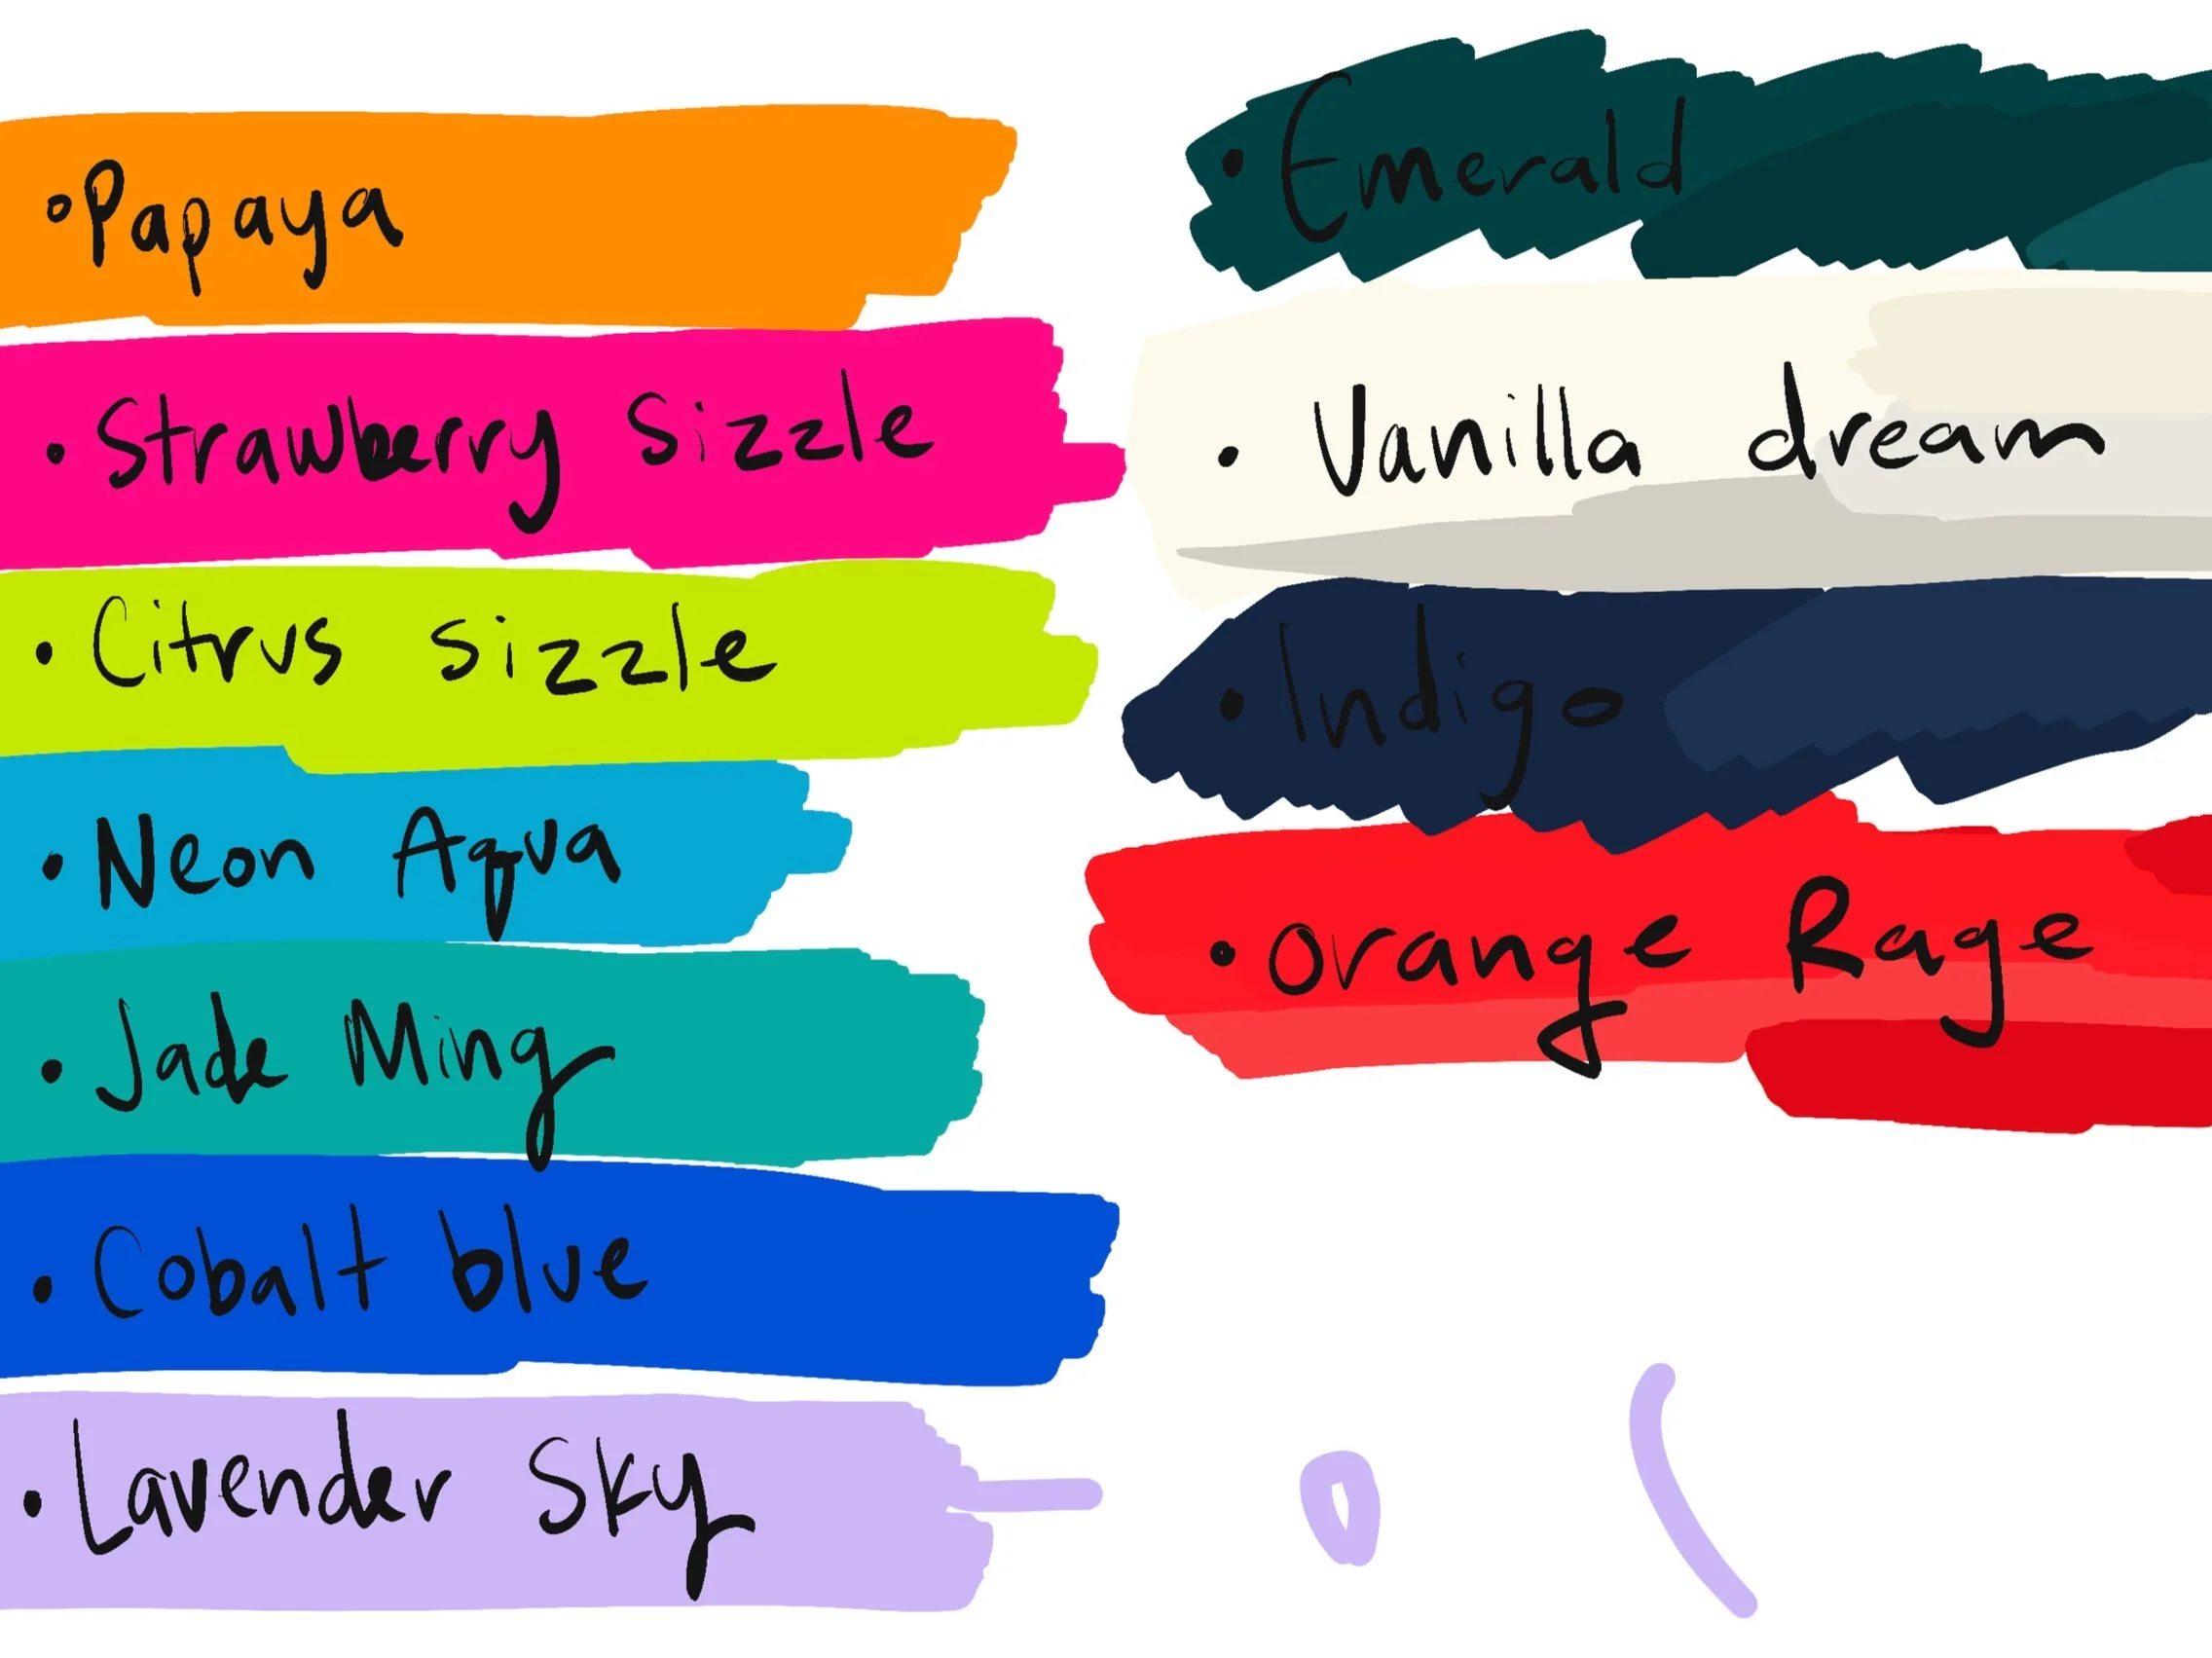 • Papaya
• Strawberry Sizzle
• Citrus sizzle
• Neon Aqua
• Jade Ming
• Cobalt blue
• Lavender Sky
• Emerald
• Vanilla dream
• Indigo
• Orange Rage